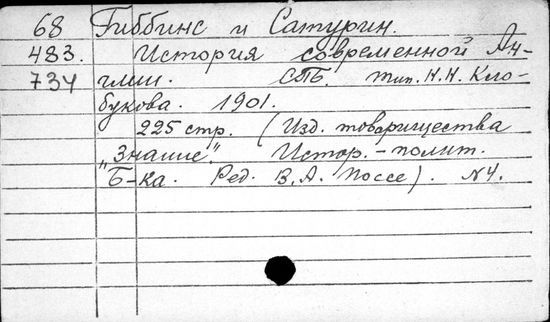 68 Гиббинс и Сатурин.
483. История современной Ан-
734 глии. СПБ. тип. Н.Н. Кло-
букова. 1901.
225 стр. (Изд. товарищества
„Знание." Истор.-полит.
Б-ка. Ред. В.А. Поссе). №4.